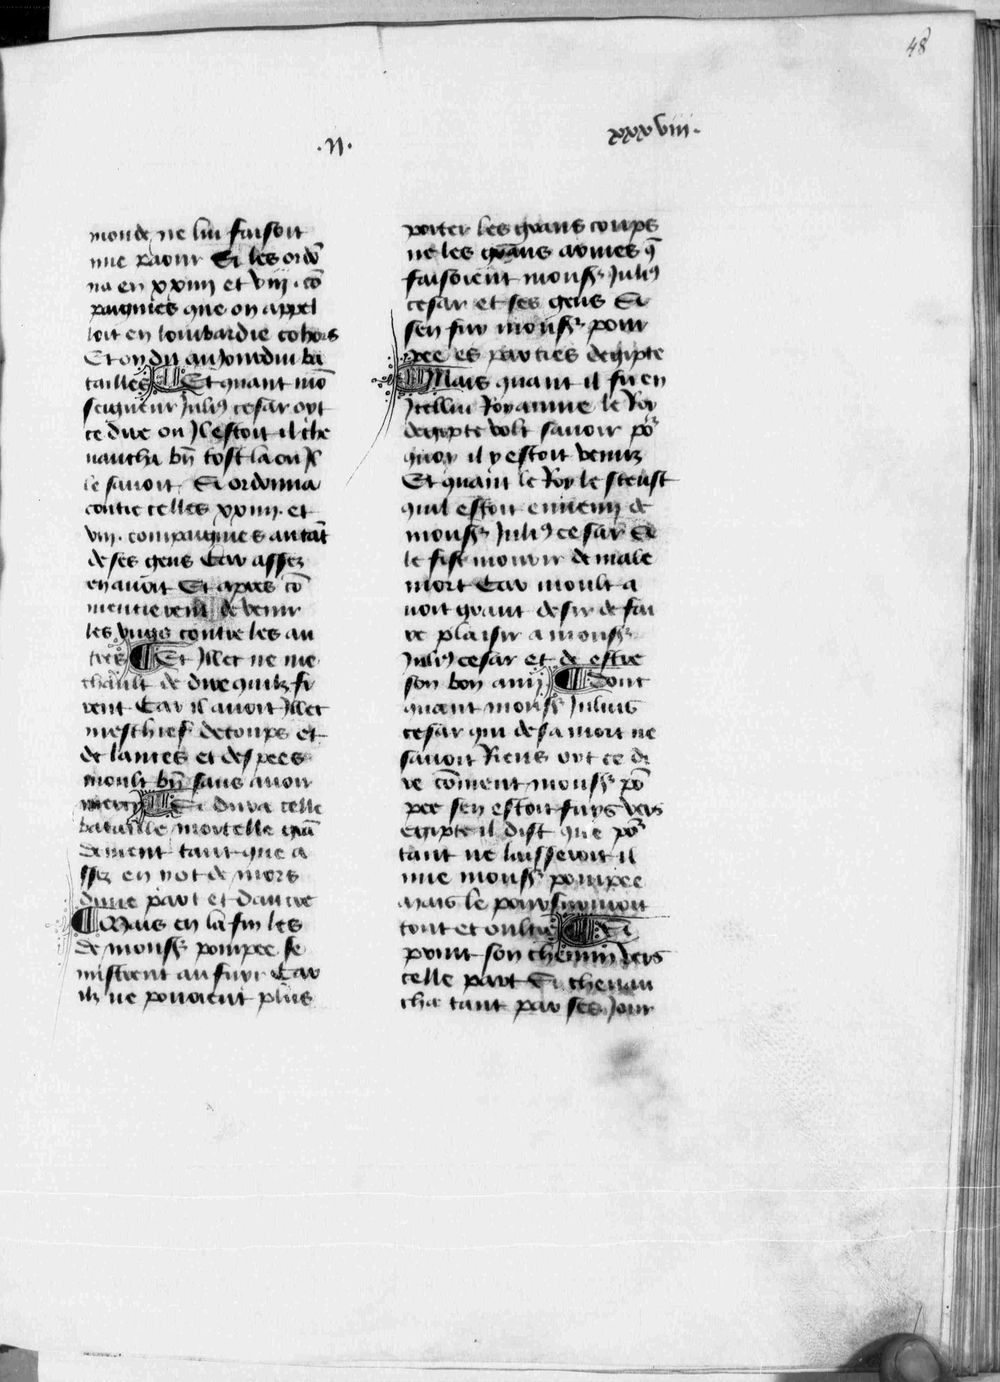 48
.II.
xxxviii.
monde ne lui faisoit
mie paour Si les ordō
na en xxiiii et viii. cō
paignies que on appel
loit en lombardie cohors
Et on dit au jourdui ba
tailles ¶ Et quant mō
seigneur Juli9 cesar oyt
ce dire ou Jl estoit il che
naucha bn̄ tost la ou Jl
le sauoit Si ordonna
contre celles xxiiii. et
viii. compaignies autāt
de ses gens Car assez
en auoit Et apres cō
mencierent de venir
les vngs contre les au
tres ¶ Et Jllec ne me
chault de dire quilz fi
rent Car il auoit Jllec
meschief de coups et
de lances et despees
moult bn̄ sans auoir
mercy ¶ Si dura celle
bataille mortelle grā
dement tant que a
ssez en y ot de mors
dune part et dautre
¶ Mais en la fin les
de monsr pompee se
mistrent au fuir Car
ilz ne pouoient plus
porter les grans coups
ne les grans armes q̄
faisoient monsr Juli9
cesar et ses gens Si
sen fuy monsr pom
pee es parties degipte
¶ Mais quant il fu en
Jcellui Royaume le Roy
degipte volt sauoir po2
quoy il y estoit venuz
Et quant le Roy le sceust
quil estoit ennemi de
monsr Juli9 cesar Si
le fist mourir de male
mort Car moult a
uoit grant desir de fai
re plaisir a monsr
Juli9 cesar et de estre
son bon amy ¶ Dont
quant monsr Julius
cesar qui de sa mort ne
sauoit Riens oyt ce di
re cōment monsr pō
pee sen estoit fuys vers
egipte il dist que po2
tant ne laisseroit il
mie monsr pompee
mais le poursuiuroit
tout et oultre ¶ Si
prinst son chemin vers
celle part Si cheuau
cha tant par ses Jour